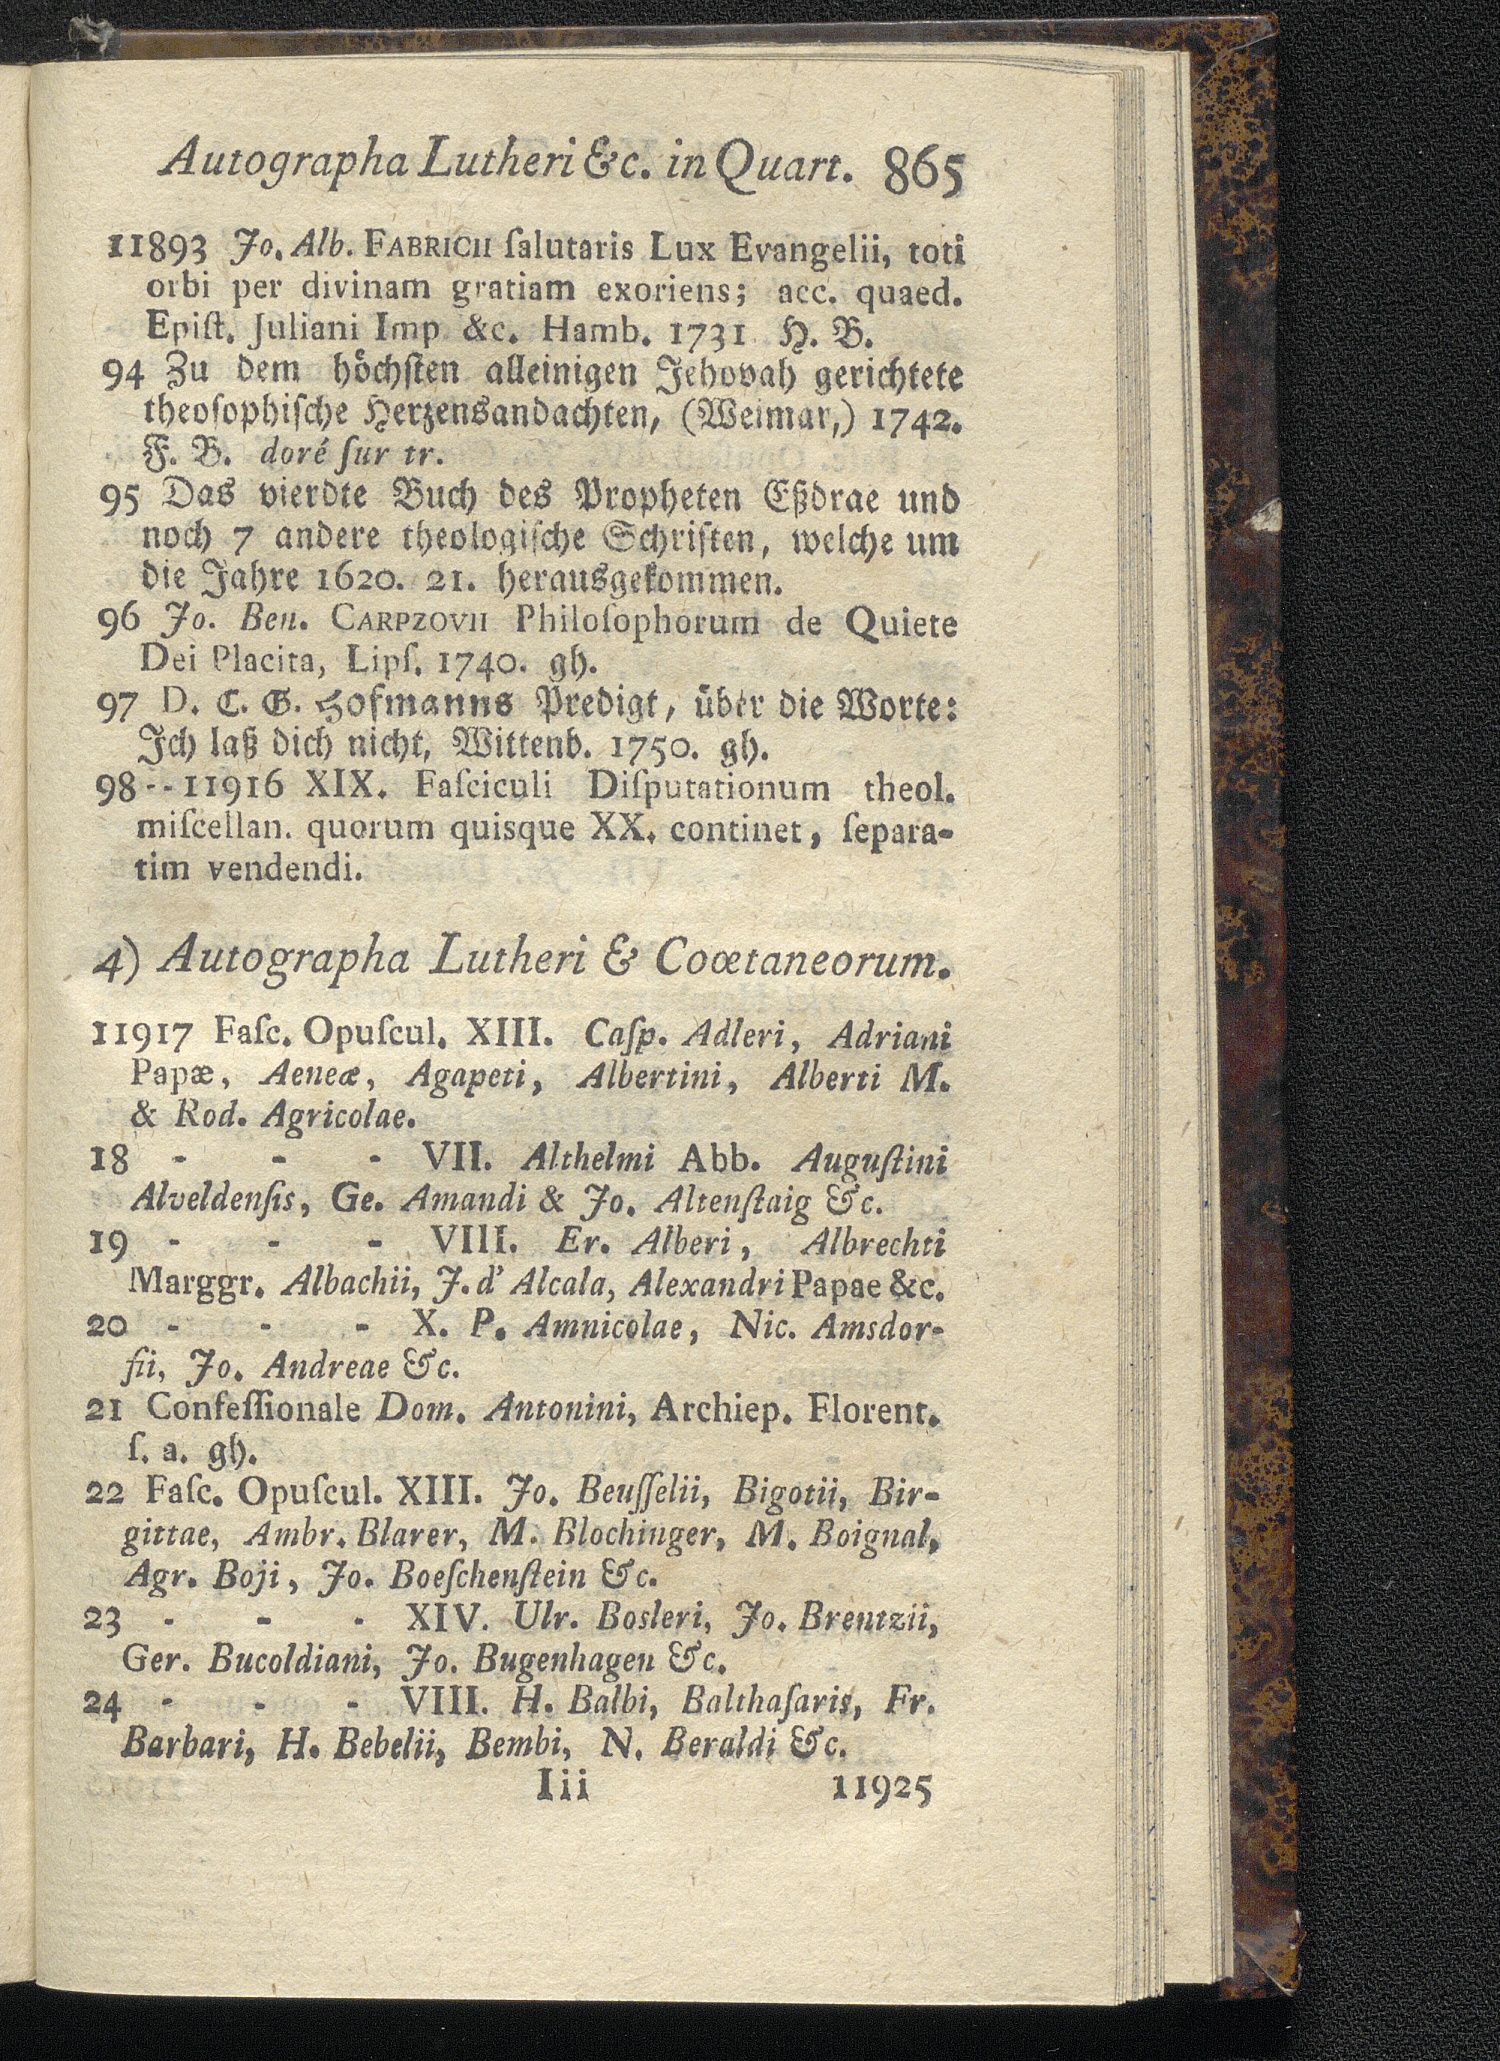 Autographa Lutheri &c. in Quart. 865
11893 Jo. Alb. FABRICII ſalutaris Lux Evangelii, toti
orbi per divinam gratiam exoriens; acc. quaed.
Epiſt. Juliani Imp &c. Hamb. 1731 H. B.
94 Zu dem höchſten alleinigen Jehovah gerichtete
theoſophiſche Herzensandachten, (Weimar,) 1742.
F. B. doré ſur tr.
95 Das vierdte Buch des Propheten Eßdrae und
noch 7 andere theologiſche Schriften, welche um
die Jahre 1620. 21. herausgekommen.
96 Jo. Ben. CARPZOVII Philoſophorum de Quiete
Dei Placita, Lipſ. 1740. gh.
97 D. C. G. Hofmanns Predigt, über die Worte:
Ich laß dich nicht, Wittenb. 1750. gh.
98 -- 11916 XIX. Faſciculi Diſputationum theol.
miſcellan. quorum quisque XX. continet, ſepara-
tim vendendi.
4) Autographa Lutheri & Coœtaneorum.
11917 Faſc. Opuſcul. XIII. Caſp. Adleri, Adriani
Papæ, Aeneæ, Agapeti, Albertini, Alberti M.
& Rod. Agricolae.
18 - - - VII. Althelmi Abb. Auguſtini
Alveldenſis, Ge. Amandi & Jo. Altenſtaig &c.
19 - - - VIII. Er. Alberi, Albrechti
Marggr. Albachii, J. d' Alcala, Alexandri Papae &c.
20 - - - X. P. Amnicolae, Nic. Amsdor-
fii, Jo. Andreae &c.
21 Confeſſionale Dom. Antonini, Archiep. Florent.
ſ. a. gh.
22 Faſc. Opuſcul. XIII. Jo. Beuſſelii, Bigotii, Bir-
gittae, Ambr. Blarer, M. Blochinger, M. Boignal,
Agr. Boji, Jo. Boeſchenſtein &c.
23 - - - XIV. Ulr. Bosleri, Jo. Brentzii,
Ger. Bucoldiani, Jo. Bugenhagen &c.
24 - - - VIII. H. Balbi, Balthaſaris, Fr.
Barbari, H. Bebelii, Bembi, N. Beraldi &c.
Iii 11925